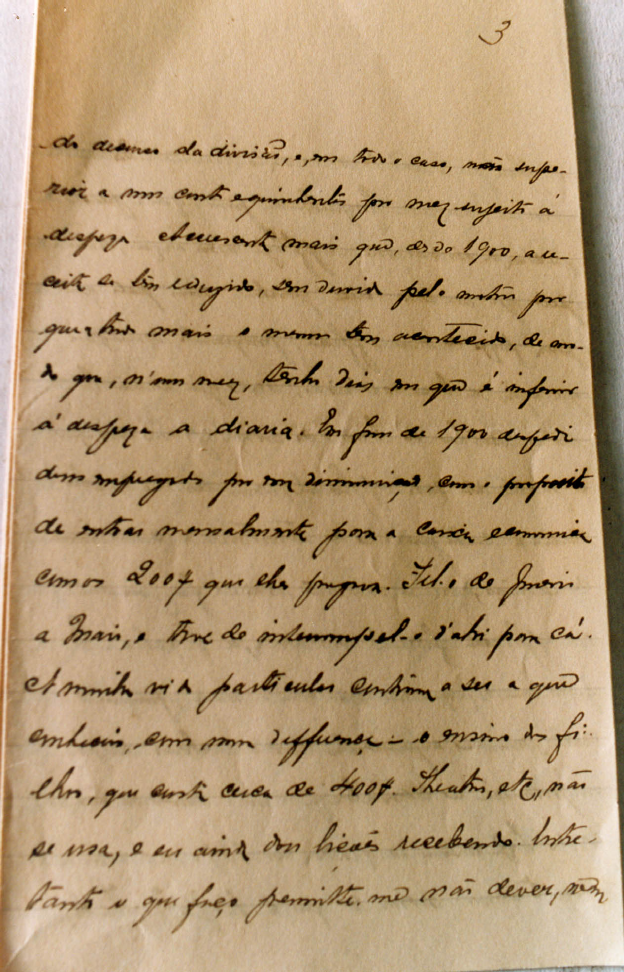 3
do decurso da divisão, e, em todo o caso, não supe-
rior a um conto equivalente por mez sujeito á
despeza. Accrescente mais que, desde 1900, a re-
ceita se tem reduzido, sem duvida pelo motivo por
que a tudo mais o mesmo tem acontecido, de mo-
do que, n'um mez, tenho dias em que é inferior
á despeza a diaria. Em fins de 1900 despedi
dous empregados por diminuição, com o proposito
de entrar mensalmente para a caixa economica
com os 200$ que elles pagava. Fil-o de Janeiro
a Maio, e tive de interrompel-o d'ahi para cá.
A minha vida particular continúa a ser a que
conheceis, com uma differença — o ensino dos fi-
lhos, que custa cerca de 400$. Theatro, etc., não
se usa, e eu ainda dou lições recebendo. Entre-
tanto o que faço permitte-me não dever, nem